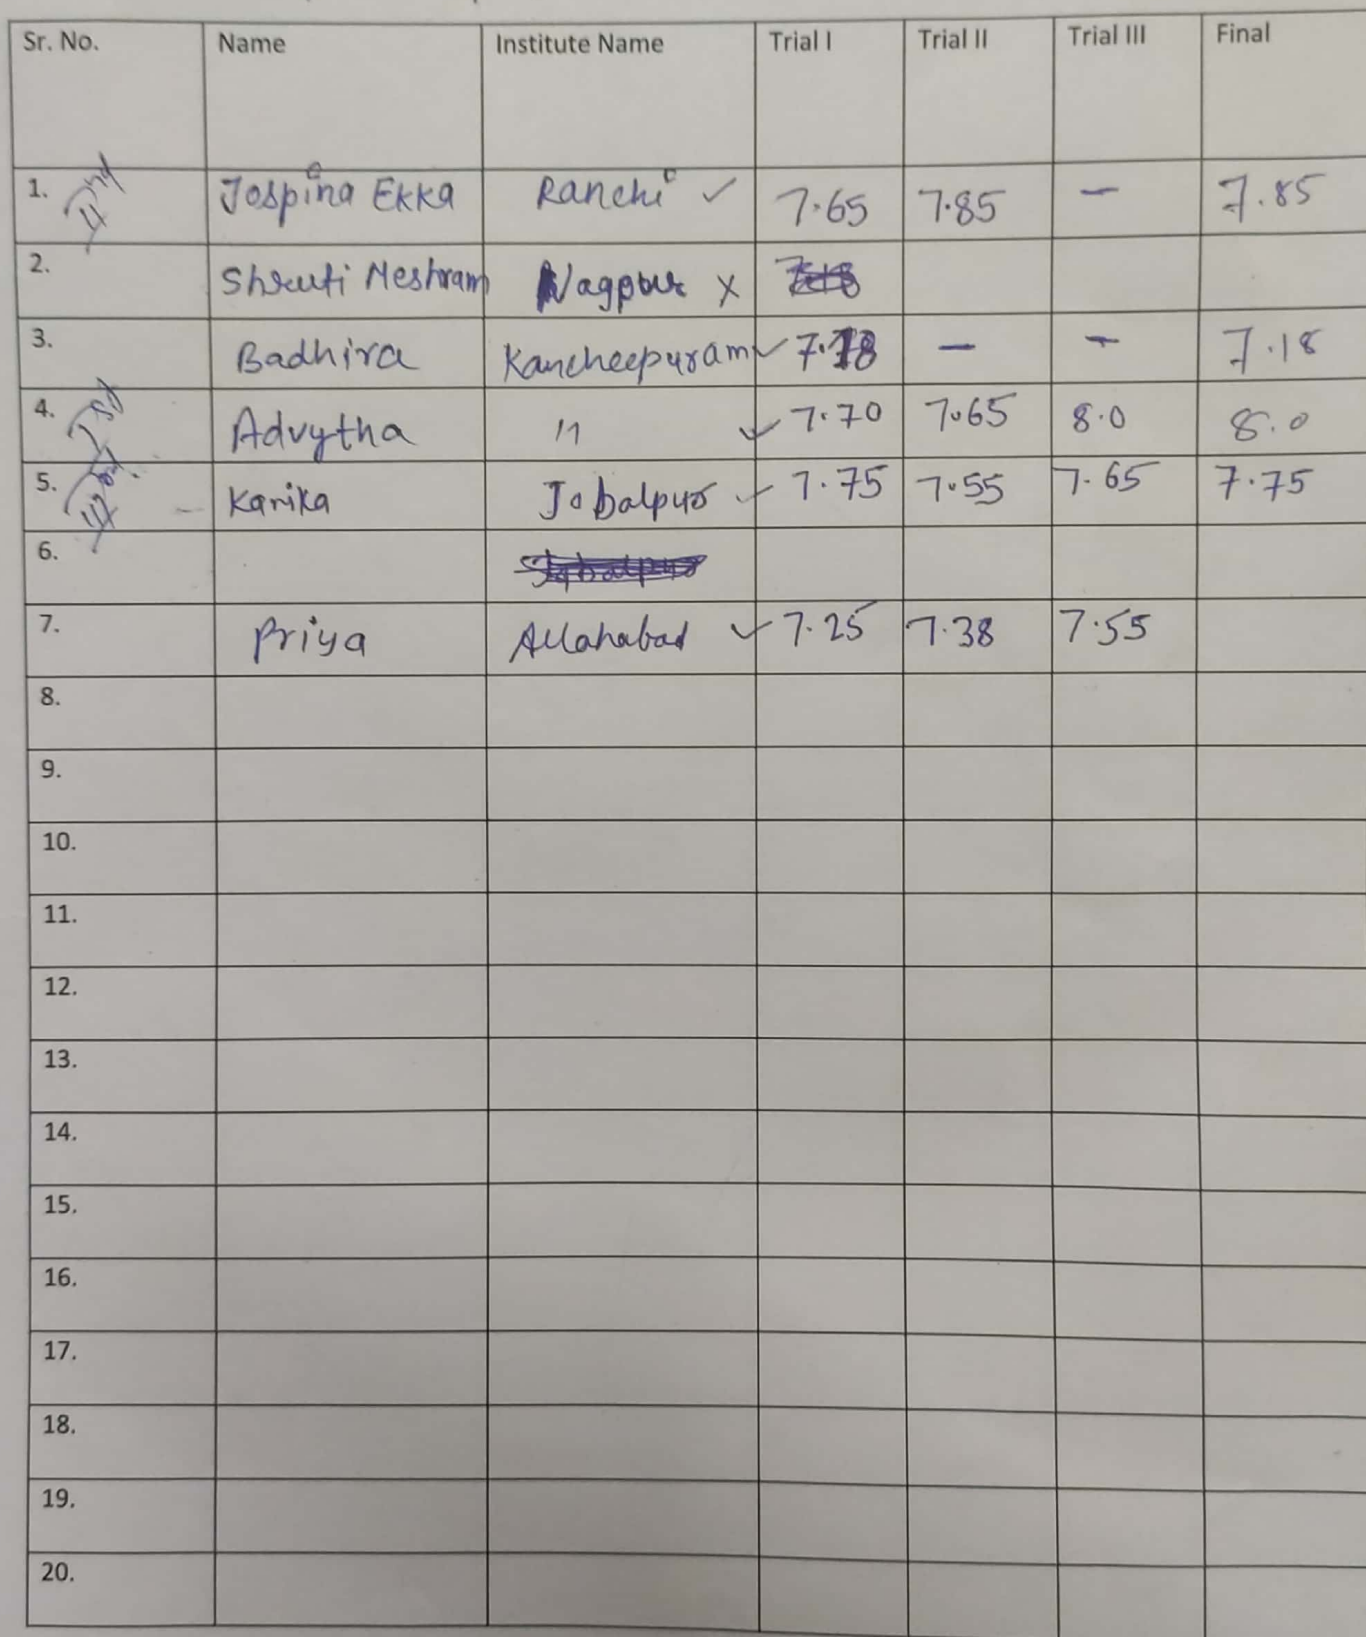 Sr. No. Name Institute Name Trial I Trial II Trial III Final
1. Jospina Ekka Ranchi ✓ 7.65 7.85 – 7.85
2. Shruti Meshram Nagpur x
3. Badhira Kancheepuram ✓ 7.18 – – 7.18
4. Advytha 11 ✓ 7.70 7.65 8.0 8.0
5. Kanika Jabalpur ✓ 7.75 7.55 7.65 7.75
6.
7. Priya Allahabad ✓ 7.25 7.38 7.55
8.
9.
10.
11.
12.
13.
14.
15.
16.
17.
18.
19.
20.